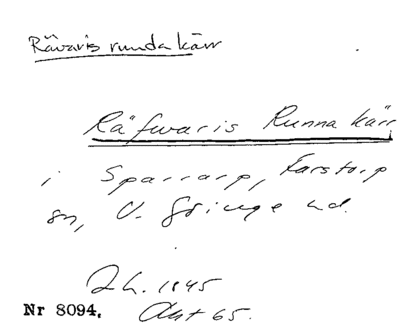 Rävaris runda kärr
Räfwaris Runna kärr
i Sparrarp, Farstorp
sn, V. Göinge hd.
Lh. 1845
Nr 8094. Akt 65.